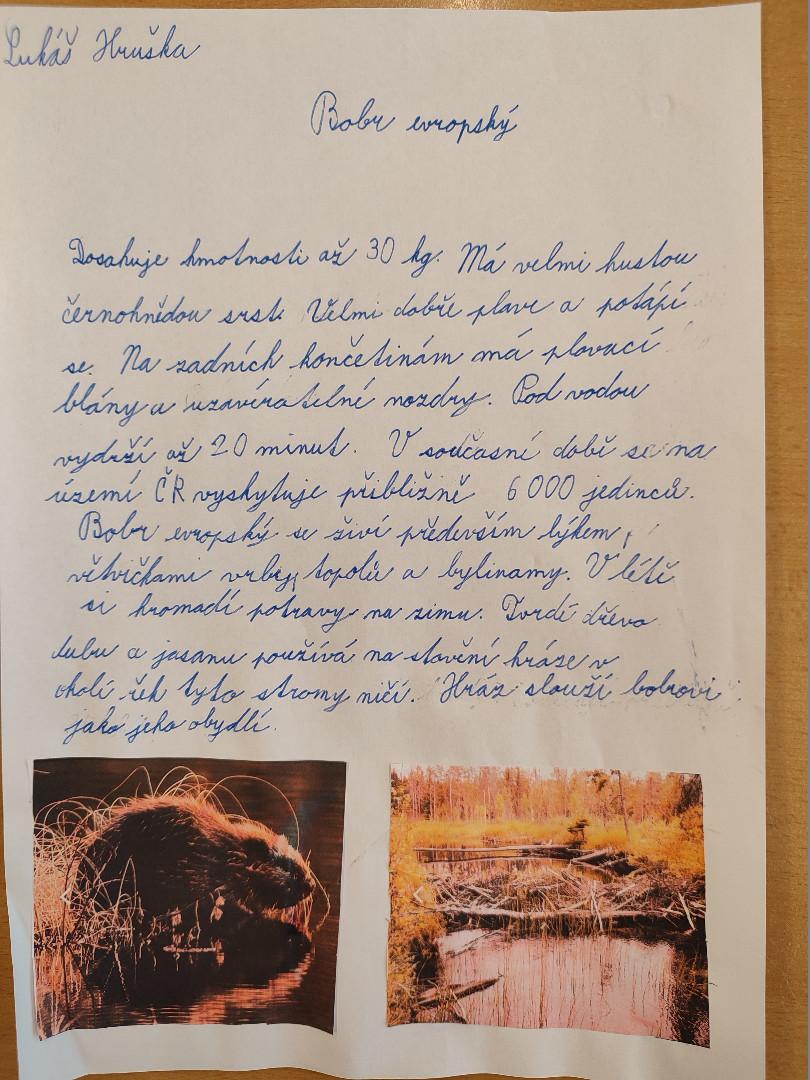 Lukáš Hruška
Bobr evropský
Dosahuje hmotnosti až 30 kg. Má velmi hustou
černohnědou srst. Velmi dobře plave a potápí
se. Na zadních končetinám má plovací
blány a uzavíratelné nozdry. Pod vodou
vydrží až 20 minut. V současní době se na
území ČR vyskytuje přibližně 6 000 jedinců.
Bobr evropský se živí především lýkem,
větvičkami vrby, topolů a bylinamy. V létě
si hromadí potravy na zimu. Tvrdé dřevo
dubu a jasanu používá na stavění hráze v
okolí řek tyto stromy ničí. Hráz slouží bobrovi
jako jeho obydlí.